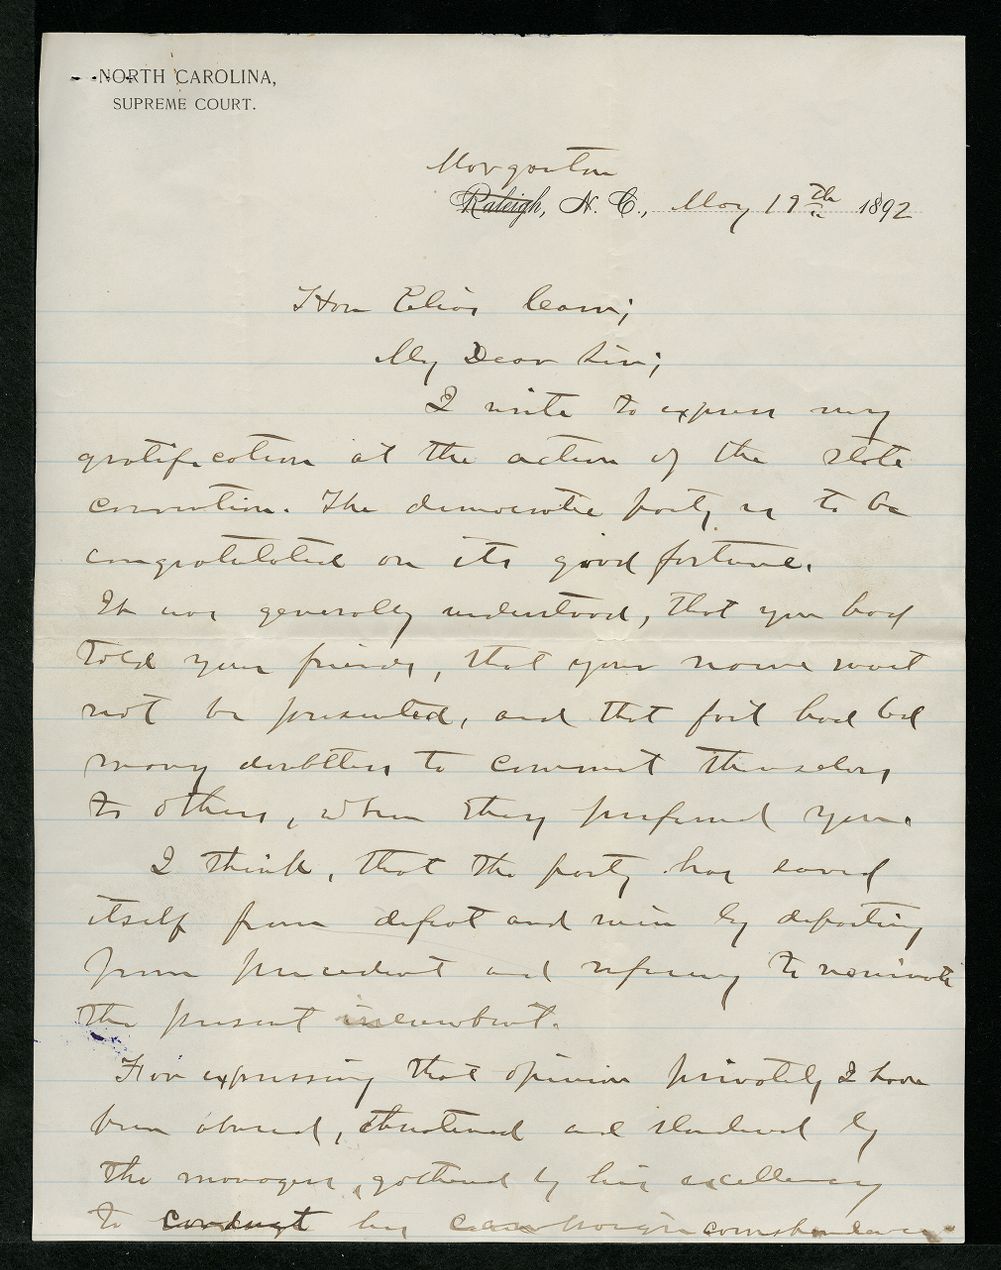 NORTH CAROLINA,
SUPREME COURT.
Morganton
Raleigh, N. C., May 19th 1892
Hon Elias Carr;
My Dear Sir;
I write to express my
gratification at the action of the state
convention. The democratic party is to be
congratulated on its good fortune.
It was generally understood, that you had
told your friends, that your name must
not be presented, and that fact had led
many doubtless to commit themselves
to others, when they preferred you.
I think, that the party has saved
itself from defeat and ruin by departing
from precedent and refusing to nominate
the present incumbent.
For expressing that opinion privately I have
been abused, threatened and slandered by
the managers, gathered by his excellency
to conduct his campaign